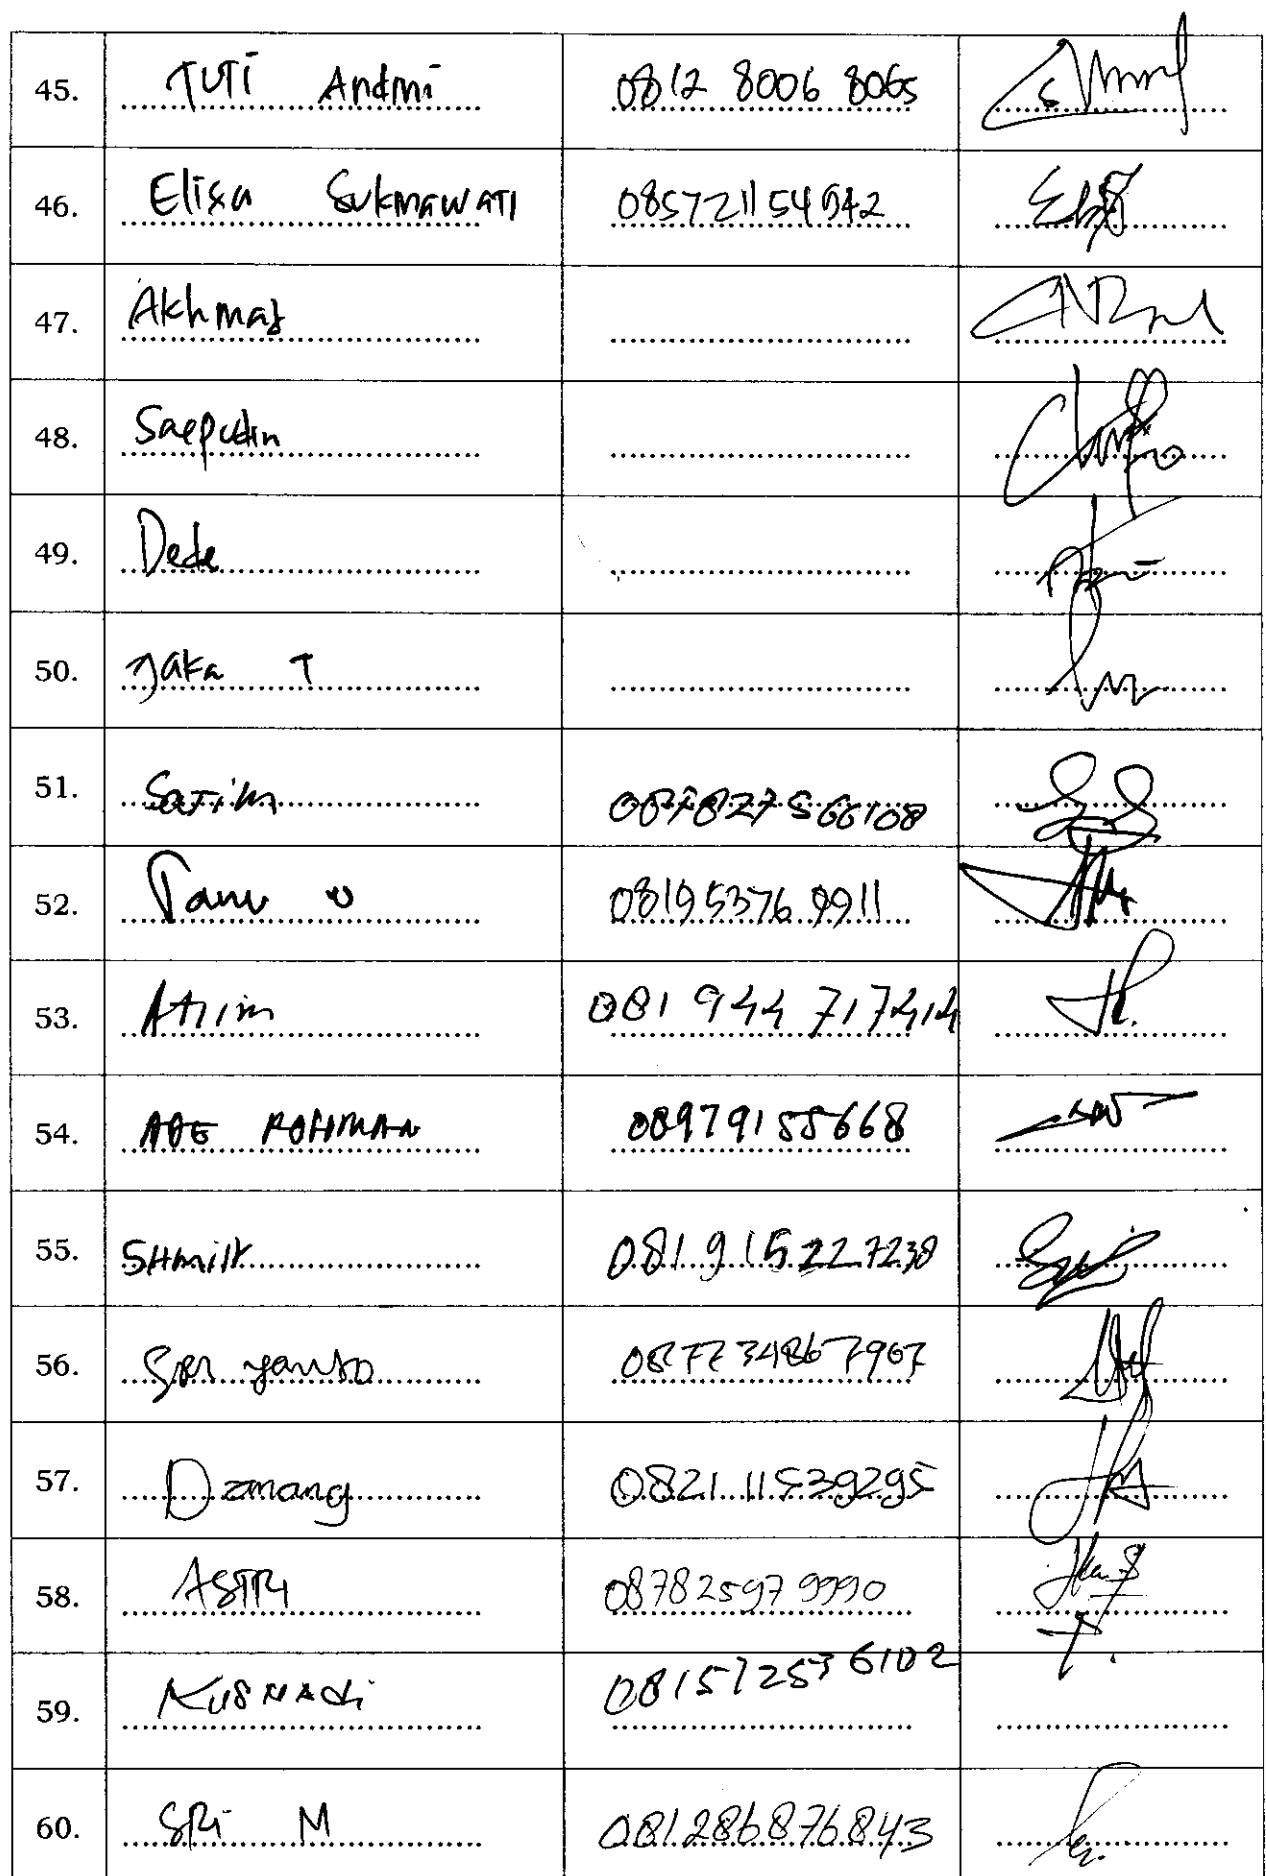 45. TUTI Andini 0812 8006 8065
46. Elisa Sukmawati 085721154942
47. Akhmad
48. Saepudin
49. Dede
50. Jaka T
51. Satim 087827566108
52. 08195376 9911
53. 081 944 717414
54. ADE ROHMAN 089791 55668
55. 081 915 227238
56. 087734867967
57. Danang 0821 11539295
58. ASTRI 087825979990
59. KUSNADI 081572536102
60. SRi M 081286876843